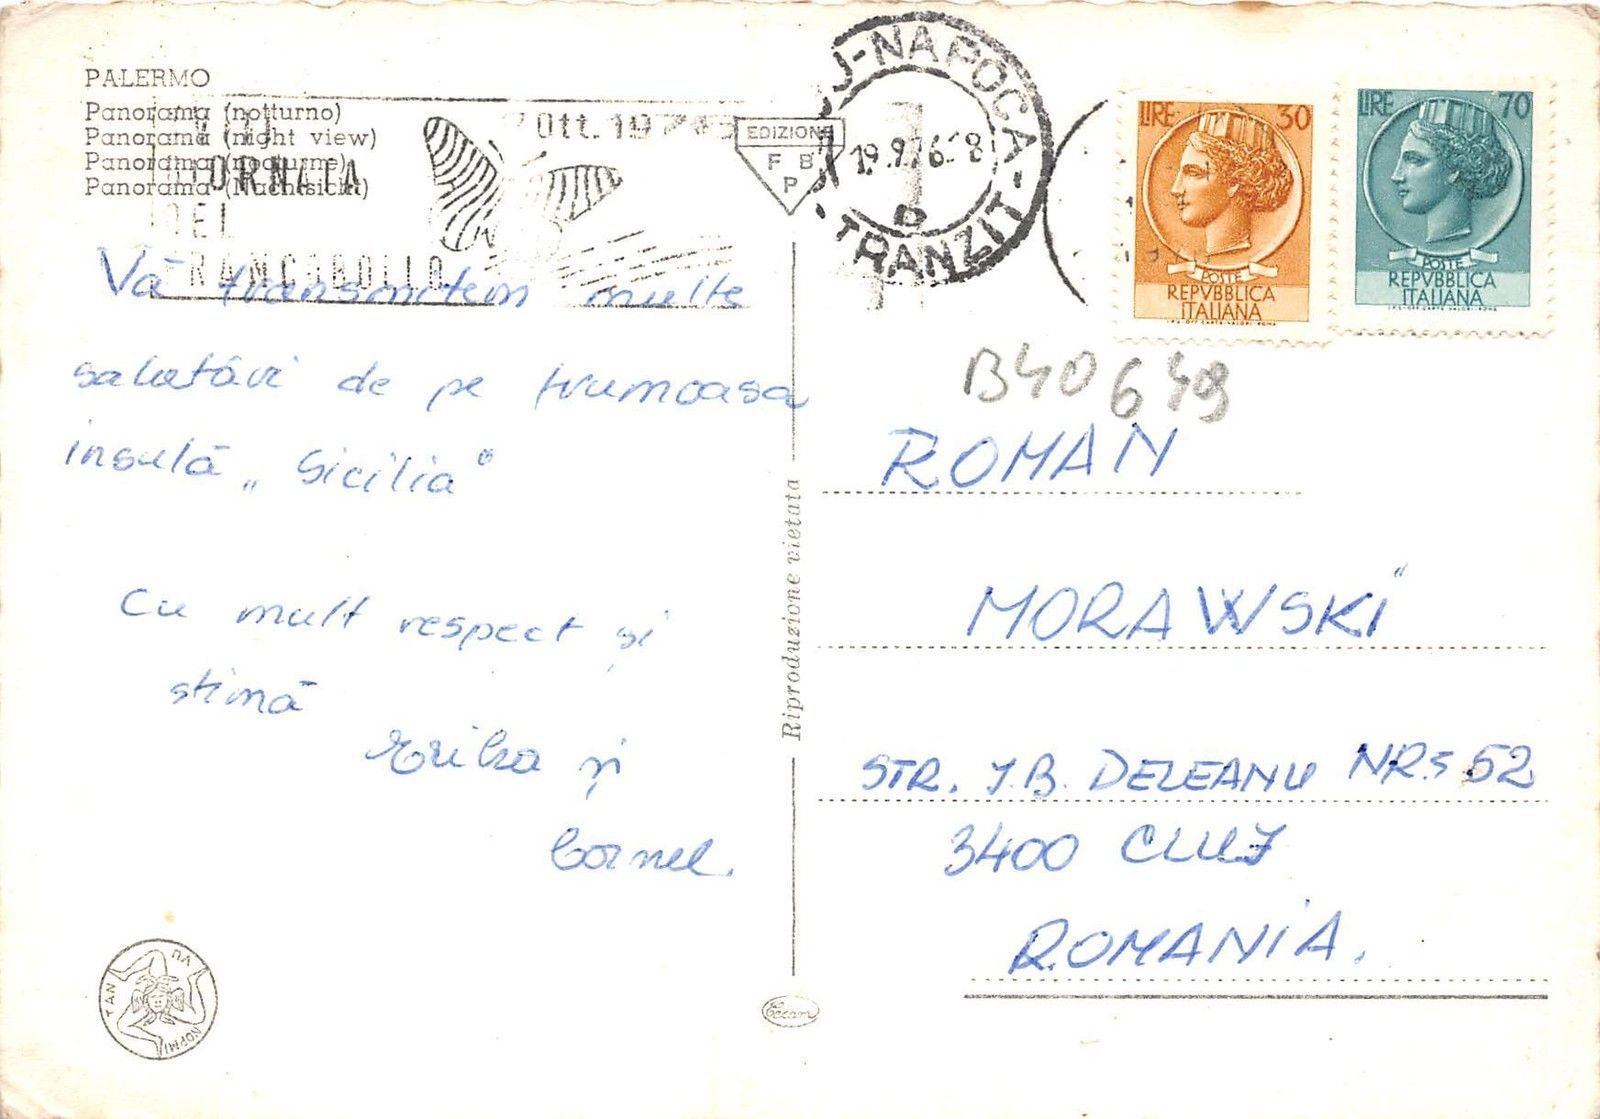 PALERMO
Panorama (notturno)
Panorama (night view)
Panorama (nocturne)
Panorama (Nachtsicht)
GIORNATA
DEL
FRANCOBOLLO
Ott. 197
EDIZIONE
F B
P
UJ-NAPOCA
19.9.76
TRANZIT
LIRE 30
POSTE
REPVBBLICA
ITALIANA
I.P.S.-OFF. CARTE-VALORI-ROMA
LIRE 70
POSTE
REPVBBLICA
ITALIANA
I.P.S.-OFF. CARTE-VALORI-ROMA
Vă transmitem multe
salutări de pe frumoasa
insulă „Sicilia"
Cu mult respect și
stimă
Erika și
Cornel.
Riproduzione vietata
B40649
ROMAN
MORAWSKI
STR. I.B. DELEANU NR. 52
3400 CLUJ
ROMANIA.